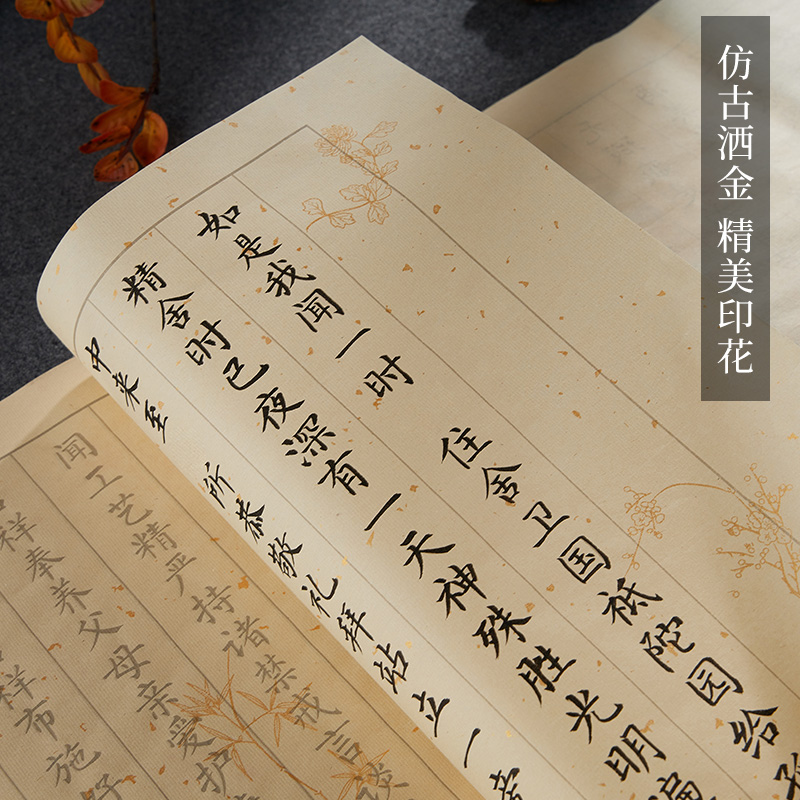 仿古洒金 精美印花
如是我闻一时 住舍卫国祇陀园给
精舍时已夜深有一天神殊胜光明遍
中来至 所恭敬礼拜站立一旁
闻工艺精严持诸禁戒言谈
祥奉养父母亲爱护
祥布施好